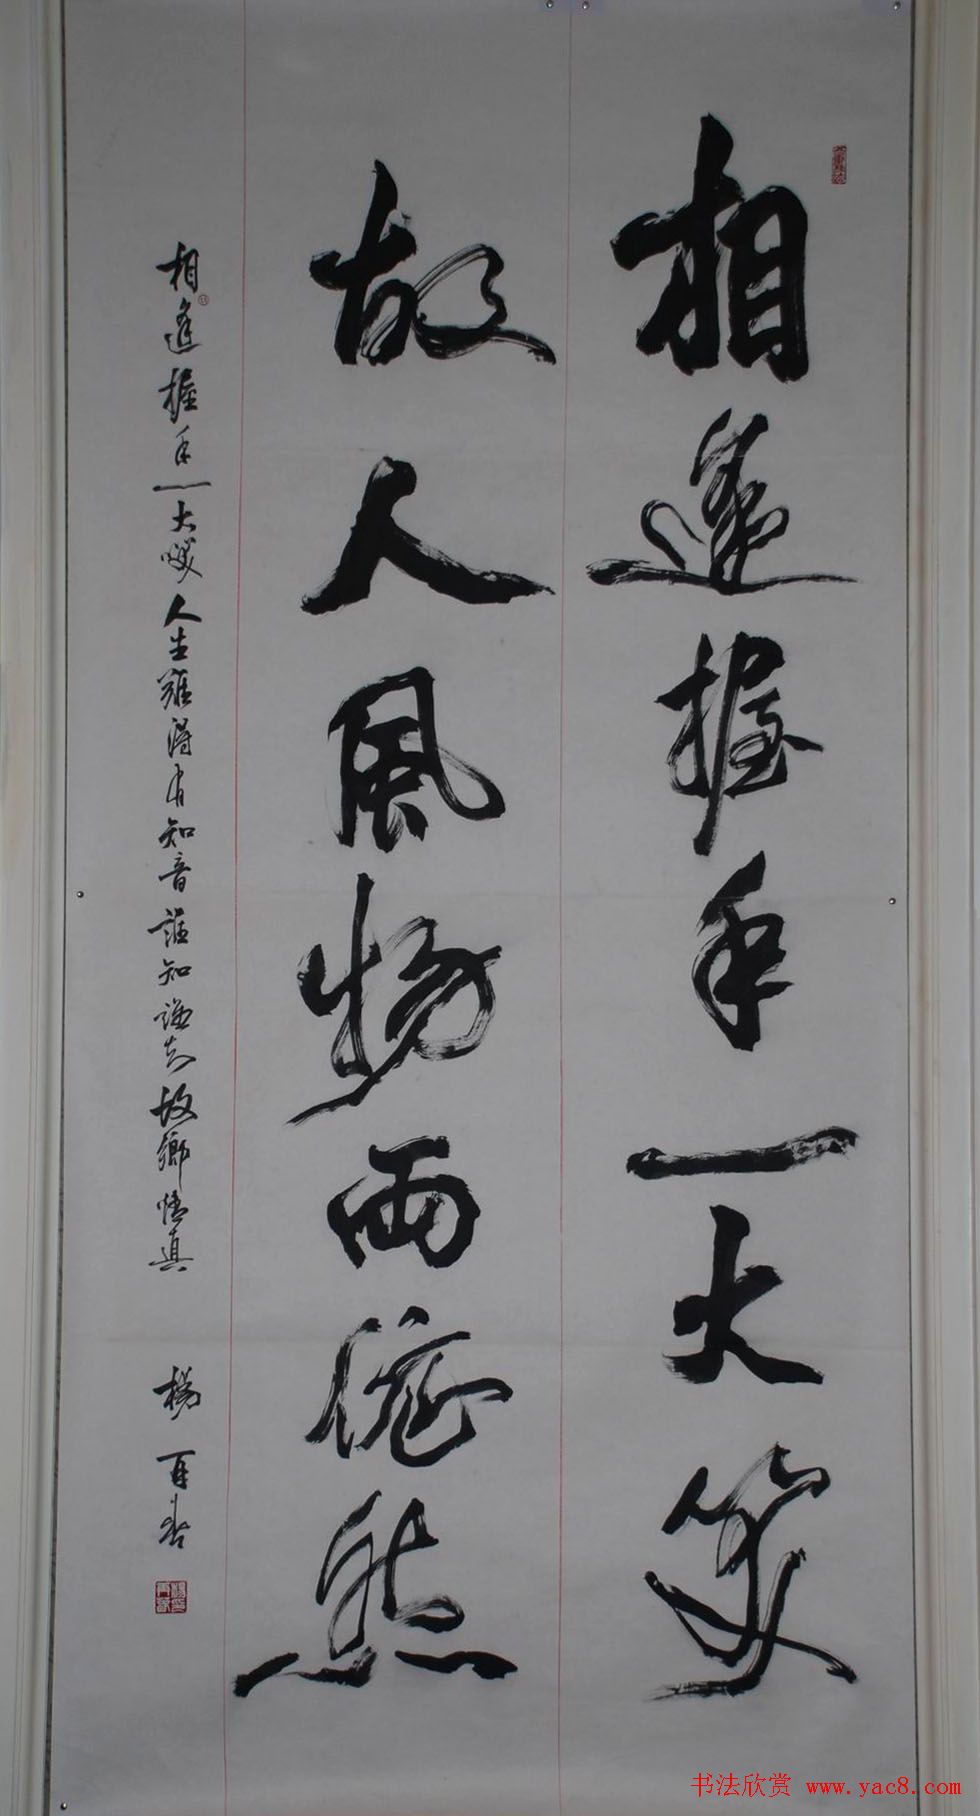 相逢握手一大笑
故人風物兩依然
相逢握手一大嘆人生難得有知音誰知誰是故鄉情真
楊再春
书法欣赏 www.yac8.com